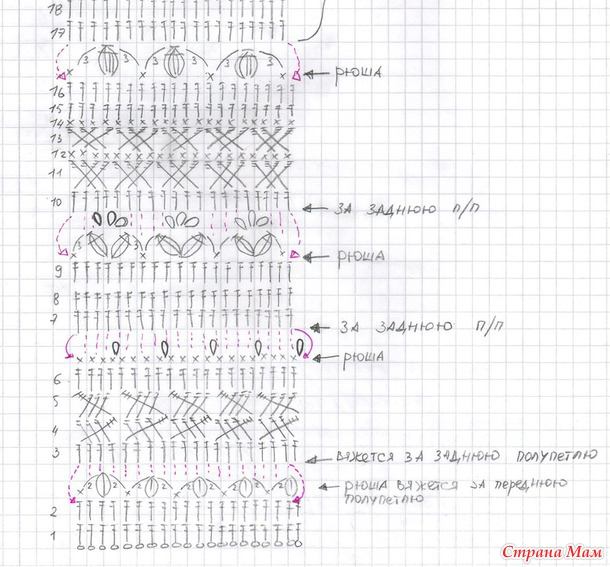 18
17
3 3 3 3
РЮША
16
15
14
13
12
11
10
ЗА ЗАДНЮЮ П/П
3 3 3
РЮША
9
8
7
ЗА ЗАДНЮЮ П/П
РЮША
6
5
4
3
ВЯЖЕТСЯ ЗА ЗАДНЮЮ ПОЛУПЕТЛЮ
2 2 2 2 2
РЮША ВЯЖЕТСЯ ЗА ПЕРЕДНЮЮ
ПОЛУПЕТЛЮ
2
1
Страна Мам